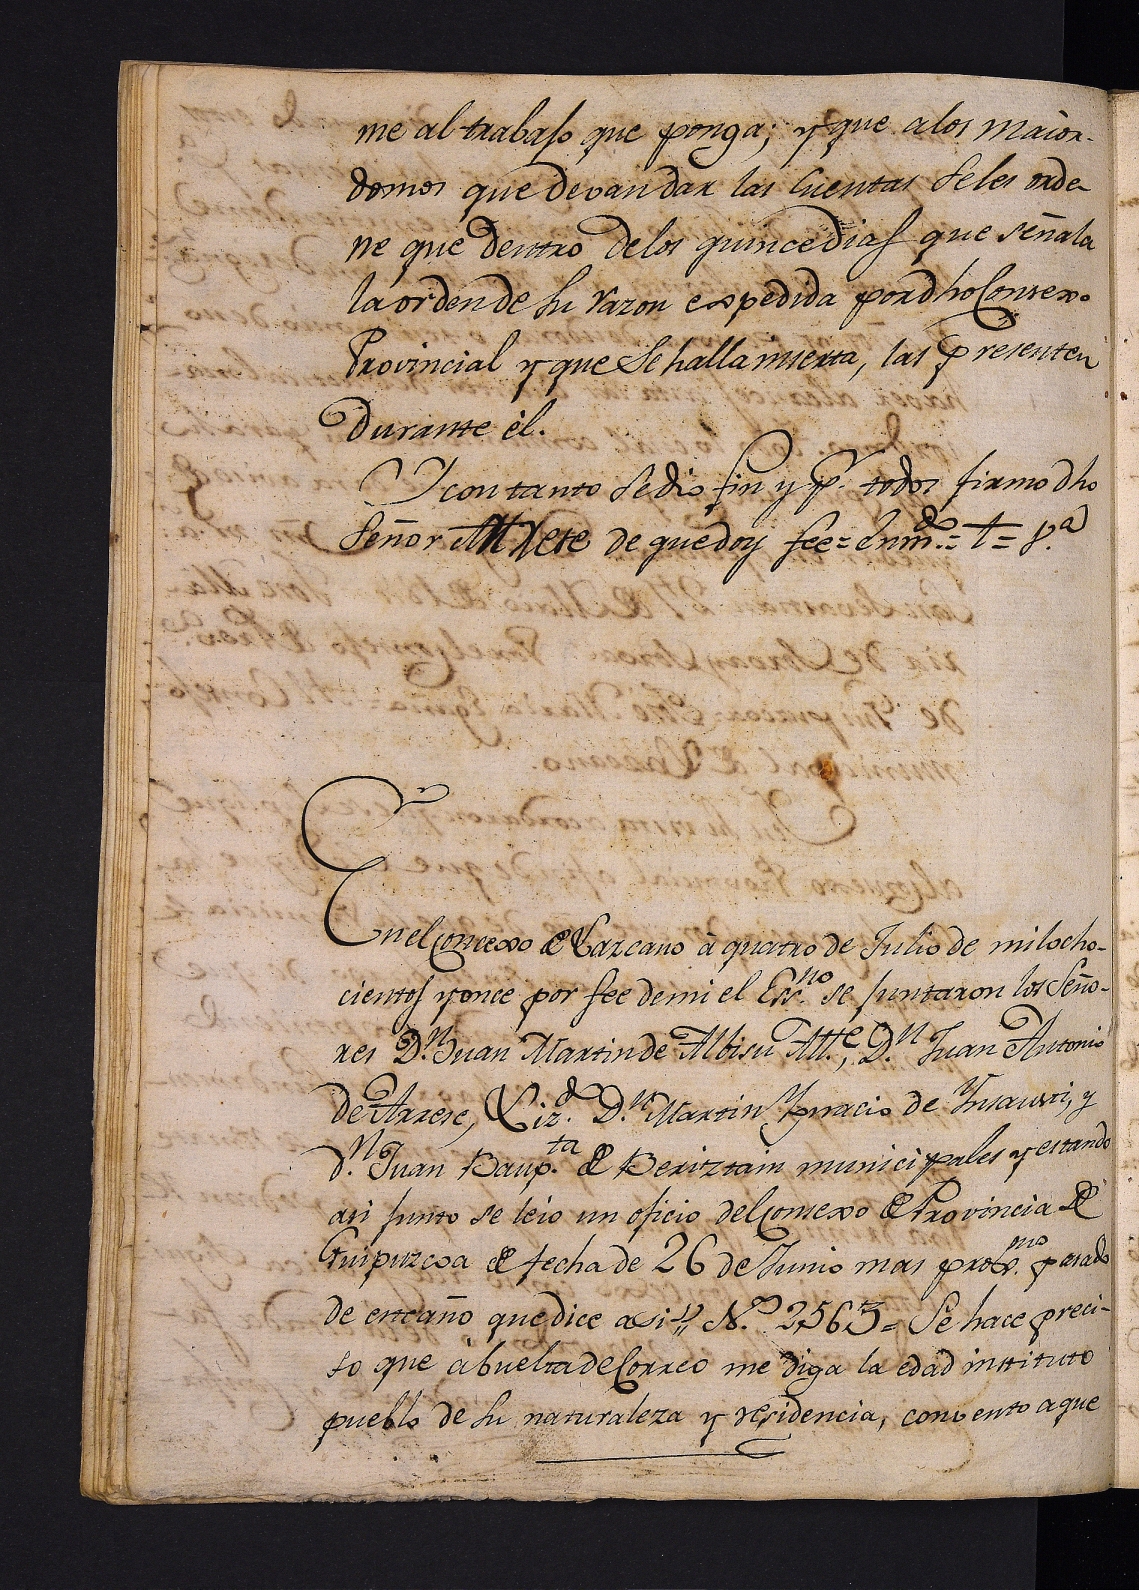 me al trabajo que ponga; y que a los maior-
domos que devan dar las Cuentas se les orde
ne que dentro de los quince dias que señala
la orden de su razon expedida por dho Consexo
Provincial y que se halla inserta, las presenten
durante él.
Y con tanto se dio fin y pr. todos firmo dho
Señor Alldete de que doy fee = enmdo. = t = p.a
En el Concexo de Lazcano à quatro de Julio de mil ocho-
cientos y once por fee de mi el Ess.no se juntaron los Seño-
res D.n Juan Martin de Albisu All.e, D.n Juan Antonio
de Arrese, Liz.do D.n Martin Ygnacio de Ynsausti, y
d.n Juan Baup.ta de Beriztain municipales y estando
asi junto se leio un oficio del Consexo de Provincia de
Guipuzcoa de fecha de 26 de Junio mas prox.mo pasado
de este año que dice asi " N.o 2563 = Se hace preci-
so que à buelta de Correo me diga la edad instituto
pueblo de su naturaleza y residencia, convento a que